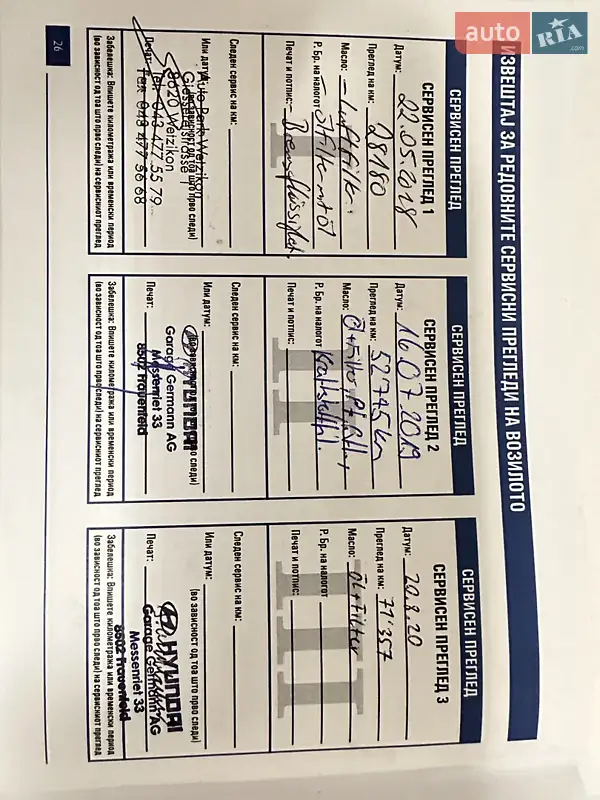 auto RIA .com
ИЗВЕШТАЈ ЗА РЕДОВНИТЕ СЕРВИСНИ ПРЕГЛЕДИ НА ВОЗИЛОТО
СЕРВИСЕН ПРЕГЛЕД
СЕРВИСЕН ПРЕГЛЕД 1
Датум: 22.05.2018
Преглед на км: 28180
Масло: - Luftfilter
Р. Бр. на налогот - Ölfilter + Öl
Печат и потпис: Bremsflüssigkeit
Следен сервис на км:
Или датум:
(во зависност од тоа што прво следи)
8620 Wetzikon
Печат:
Tel. 043 477 55 79
Fax 043 477 56 68
Забелешка: Впишете километража или временски период
(во зависност од тоа што прво следи) на сервисниот преглед
СЕРВИСЕН ПРЕГЛЕД
СЕРВИСЕН ПРЕГЛЕД 2
II
Датум: 16.07.2019
Преглед на км: 52745 km
Масло: Öl + Filter
Р. Бр. на налогот
Печат и потпис:
Следен сервис на км:
Или датум:
(во зависност од тоа што прво следи)
HYUNDAI
Garage Germann AG
Messenriet 33
8502 Frauenfeld
Печат:
Забелешка: Впишете километража или временски период
(во зависност од тоа што прво следи) на сервисниот преглед
СЕРВИСЕН ПРЕГЛЕД
СЕРВИСЕН ПРЕГЛЕД 3
III
Датум: 20.8.20
Преглед на км: 71'357
Масло: Öl + Filter
Р. Бр. на налогот
Печат и потпис:
Следен сервис на км:
Или датум:
(во зависност од тоа што прво следи)
HYUNDAI
Garage Germann AG
Messenriet 33
8502 Frauenfeld
Печат:
Забелешка: Впишете километража или временски период
(во зависност од тоа што прво следи) на сервисниот преглед
26